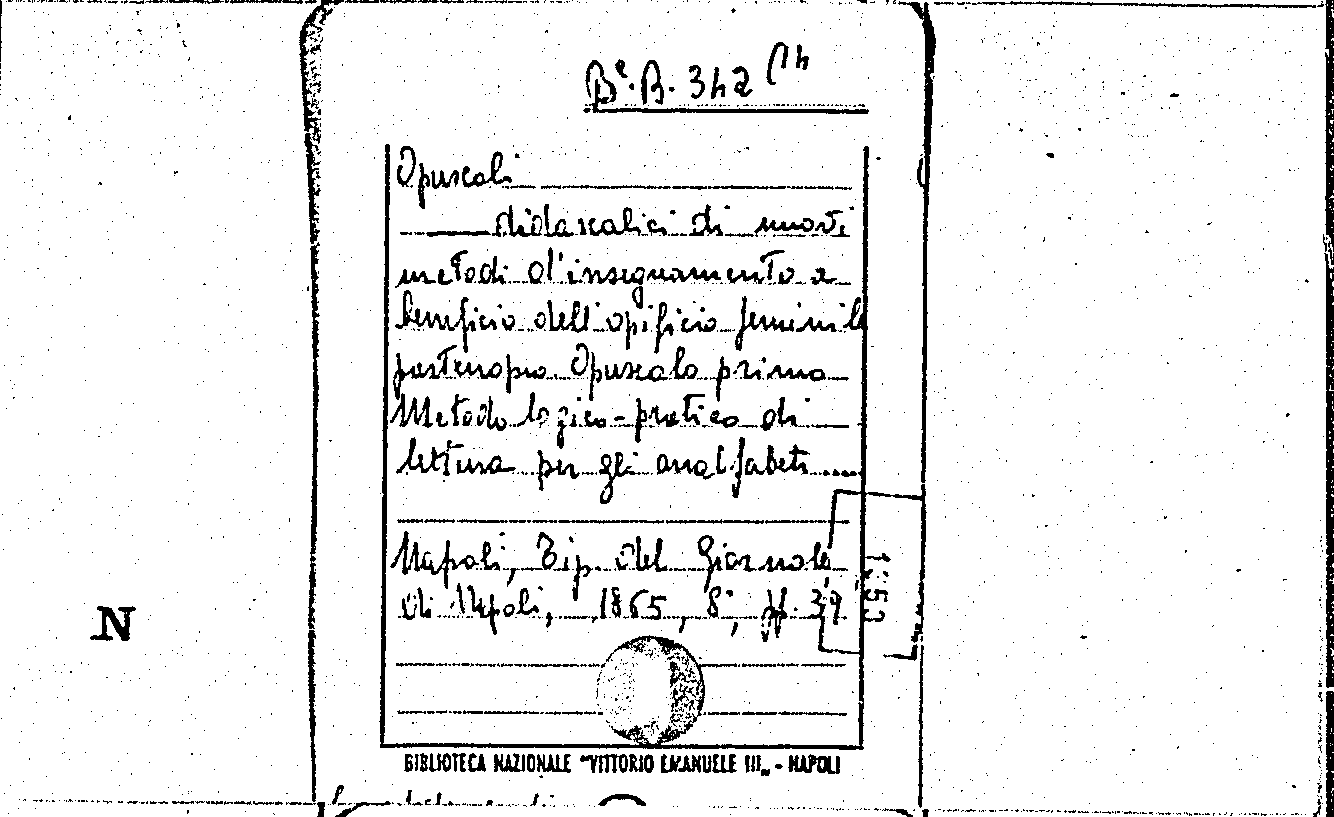 Bᵉ.B. 342 (14
Opuscoli
—— didascalici di nuovi
metodi d'insegnamento a
beneficio dell'opificio feminile
partenopeo. Opuscolo primo
Metodo logico-pratico di
lettura per gli analfabeti.....
Napoli, Tip. del Giornale
di Napoli, 1865, 8°, pp. 39
N
BIBLIOTECA NAZIONALE "VITTORIO EMANUELE III„ - NAPOLI